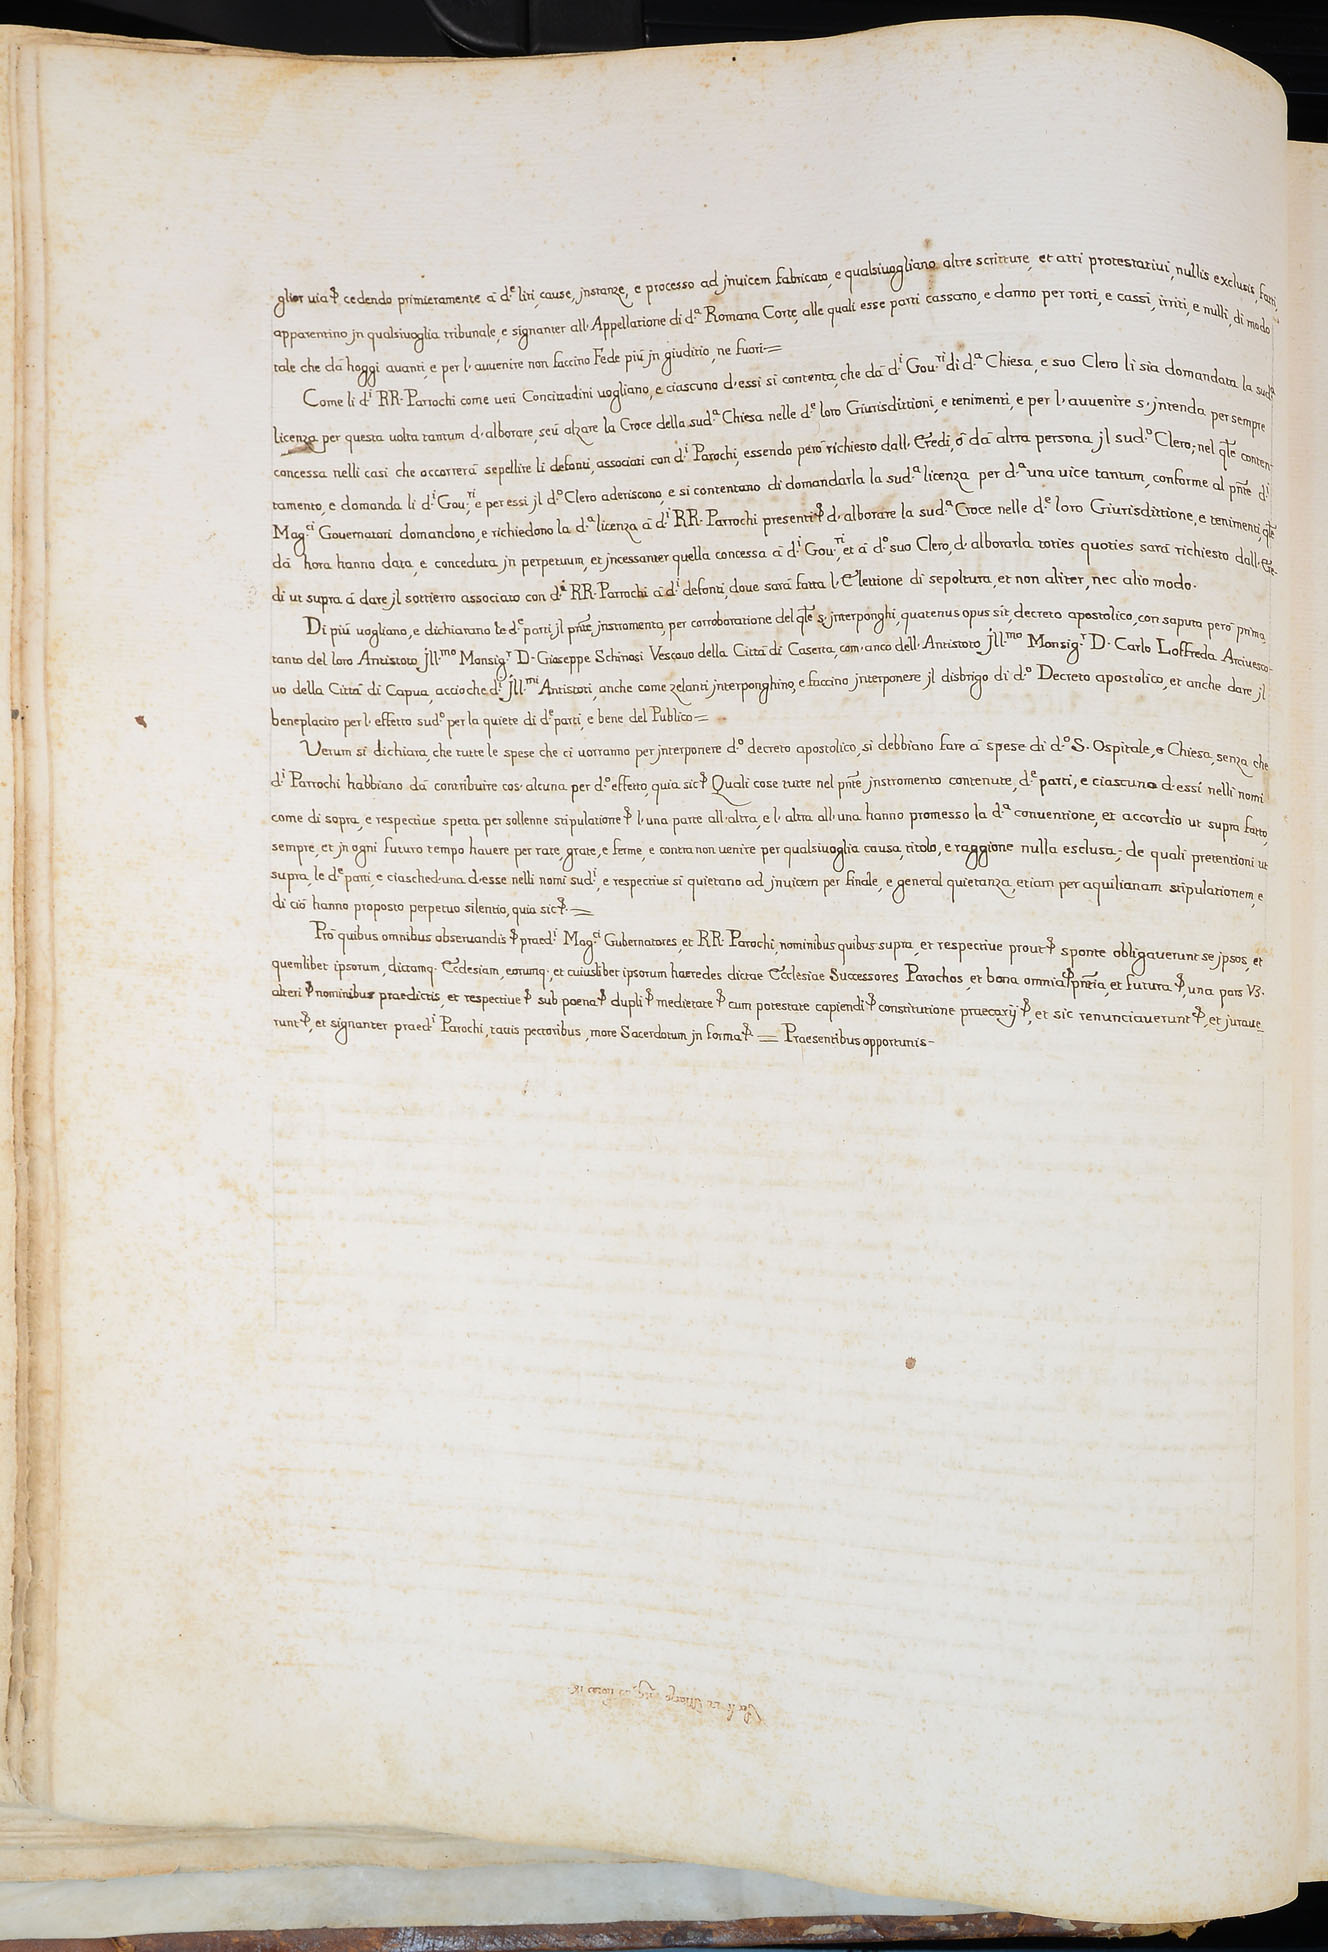 glior uia ꝑ cedendo primieramente à d.e liti, cause, jnstanze, e processo ad jnuicem fabricato, e qualsiuogliano altre scritture, et atti protestatiui, nullis exclusis, fatti,
apparentino jn qualsiuoglia tribunale, e signanter all'Appellatione di d.a Romana Corte, alle quali esse parti cassano, e danno per rotti, e cassi, irriti, e nulli, di modo
tale che dà hoggi auanti, e per l'auuenire non faccino Fede più jn giuditio, ne fuori=
Come li d.i RR. Parrochi come ueri Concittadini uogliano, e ciascuno d'essi si contenta, che dà d.i Gou.ri di d.a Chiesa, e suo Clero li sia domandata la sud.a
licenza per questa uolta tantum d'alborare, seù alzare la Croce della sud.a Chiesa nelle d.e loro Giurisdittioni, e tenimenti, e per l'auuenire s'jntenda per sempre
concessa nelli casi che occorrerà sepellire li defonti, associati con d.i Parochi, essendo però richiesto dall'Eredi, ò dà altra persona jl sud.o Clero; nel qle conten-
tamento, e domanda li d.i Gou.ri, e per essi jl d.o Clero aderiscono, e si contentano di domandarla la sud.a licenza per d.a una uice tantum, conforme al pnte d.i
Mag.ci Gouernatori domandono, e richiedono la d.a licenza à d.i RR. Parrochi presenti ꝑ d'alborare la sud.a Croce nelle d.e loro Giurisdittione, e tenimenti, qle
dà hora hanno data, e conceduta jn perpetuum, et jncessanter quella concessa à d.i Gou.ri, et à d.o suo Clero, d'alborarla toties quoties sarà richiesto dall'Ere-
di ut supra à dare jl sottierro associato con d.i RR. Parrochi à d.i defonti, doue sarà fatta l'Elettione di sepoltura, et non aliter, nec alio modo.
Di più uogliano, e dichiarano le d.e parti, jl pnte jnstromento, per corroboratione del qle s'jnterponghi, quatenus opus sit, decreto apostolico, con saputa però prima,
tanto del loro Antistoto Jll.mo Monsig.r D. Gioseppe Schinosi Vescouo della Città di Caserta, com'anco dell'Antistoto Jll.mo Monsig.r D. Carlo Loffreda Arciuesco-
uo della Città di Capua, accioche d.i Jll.mi Antistoti, anche come zelanti jnterponghino, e faccino jnterponere jl disbrigo di d.o Decreto apostolico, et anche dare jl
beneplacito per l'effetto sud.o per la quiete di d.e parti, e bene del Publico=
Uerum si dichiara, che tutte le spese che ci uorranno per jnterponere d.o decreto apostolico, si debbiano fare à spese di d.o S. Ospitale, e Chiesa, senza che
d.i Parrochi habbiano dà contribuire cos'alcuna per d.o effetto, quia sic ꝑ Quali cose tutte nel pnte jnstromento contenute, d.e parti, e ciascuno d'essi nelli nomi
come di sopra, e respectiue spetta per sollenne stipulatione ꝑ l'una parte all'altra, e l'altra all'una hanno promesso la d.a conuentione, et accordio ut supra fatto,
sempre, et jn ogni futuro tempo hauere per rate, grate, e ferme, e contra non uenire per qualsiuoglia causa, titolo, e raggione nulla esclusa; de quali pretentioni ut
supra, le d.e parti, e ciasched'una d'esse nelli nomi sud.i, e respectiue si quietano ad jnuicem per finale, e general quietanza, etiam per aquilianam stipulationem, e
di ciò hanno proposto perpetuo silentio, quia sic ꝑ.=
Prò quibus omnibus obseruandis ꝑ praed.i Mag.ci Gubernatores, et RR. Parochi, nominibus quibus supra, et respectiue prout ꝑ sponte obligauerunt se jpsos, et
quemlibet ipsorum, dictamq. Ecclesiam, eorumq. et cuiuslibet ipsorum haeredes dictae Ecclesiae Successores Parochos, et bona omnia ꝑ pntia, et futura ꝑ, una pars V3.
alteri ꝑ nominibus praedictis, et respectiue ꝑ sub poena ꝑ dupli ꝑ medietate ꝑ cum potestate capiendi ꝑ constitutione praecarij ꝑ, et sic renunciauerunt ꝑ, et juraue-
runt ꝑ, et signanter praed.i Parochi, tactis pectoribus, more Sacerdotum jn forma ꝑ.= Praesentibus opportunis-